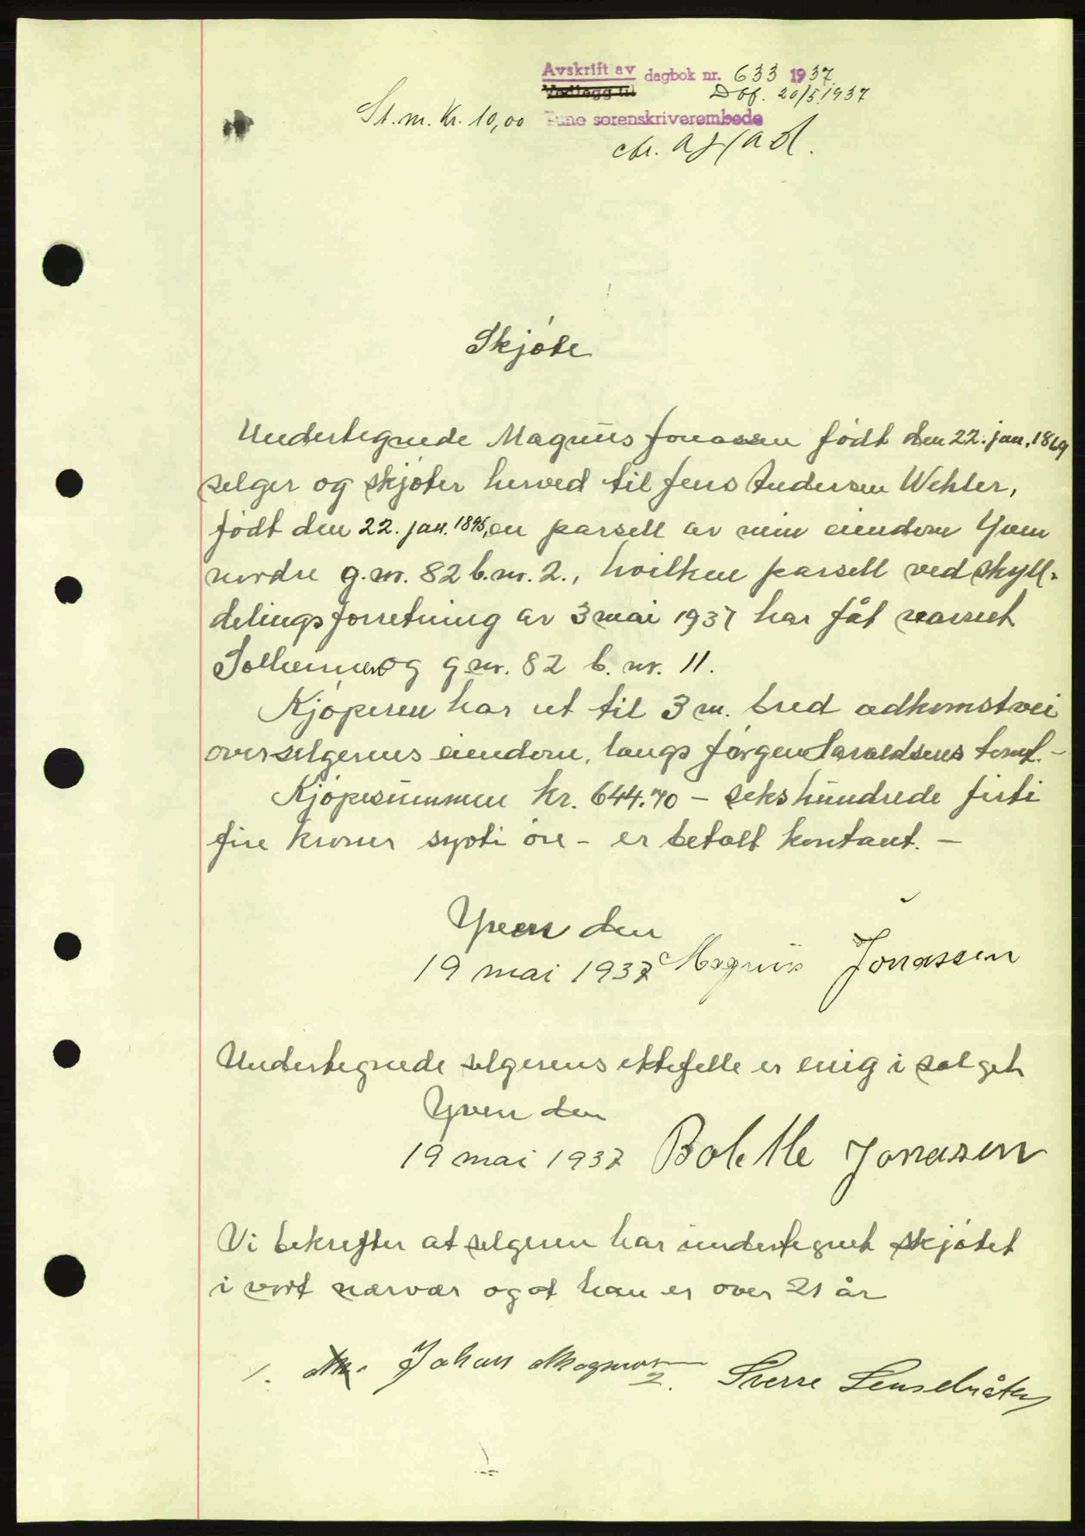 Avskrift av dagbok nr. 633 1937.
Vedlegg til Dbf. 20/5 1937
St.m. kr. 10,00 Tune sorenskriverembede
Skjøte
Undertegnede Magnus Jonassen født den 22. jan. 1869
selger og skjøter herved til Jens Andersen Wehler,
født den 22. jan. 1895, en parsell av min eiendom Yven
nordre g.nr. 82 b.nr. 2., hvilken parsell ved skyll-
delingsforretning av 3 mai 1937 har fåt navnet
Solheim og g.nr. 82 b.nr. 11.
Kjøperen har ret til 3 m. bred adkomstvei
over selgerens eiendom, langs Jørgen Haraldsens tomt. -
Kjøpesummen kr. 644.70 - sekshundrede firti
fire kroner sytti øre - er betalt kontant. -
Yven den
19 mai 1937 Magnus Jonassen
Undertegnede selgerens ektefelle er enig i salget
Yven den
19 mai 1937 Bolette Jonasen
Vi bekrefter at selgeren har undertegnet skjøtet
i vort nærvær og at han er over 21 år
1. Johan Magnussen 2. Sverre